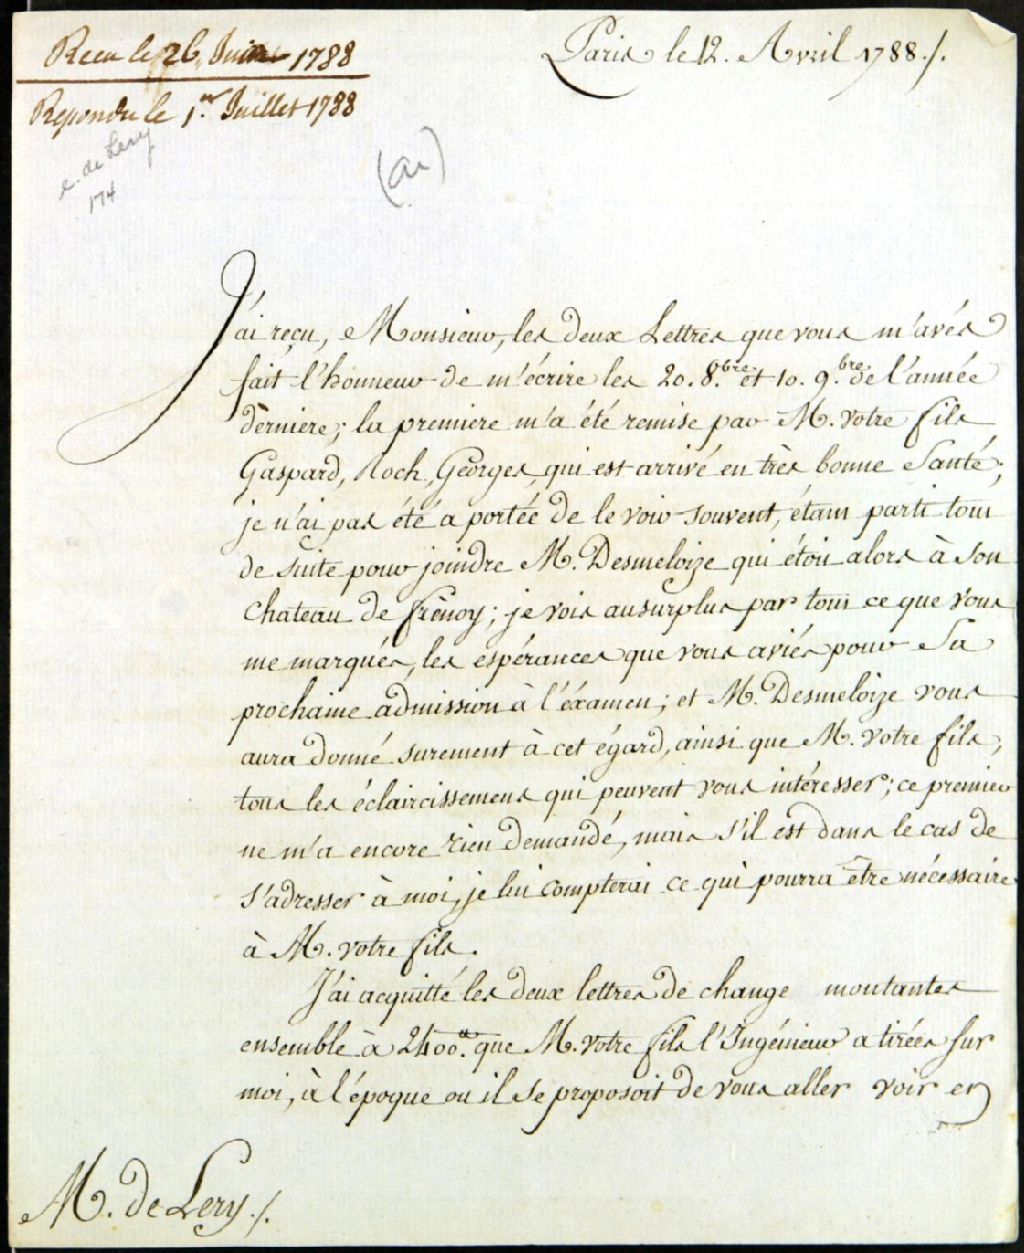 Recu le 26. Juin 1788
Repondu le 1.er Juillet 1788
Paris le 12. Avril 1788./.
c. de Lery
174
(a)
J'ai reçu, Monsieur, les deux Lettres que vous m'avés
fait l'honneur de m'écrire les 20. 8.bre et 10. 9.bre de l'année
dèrniere; la premiere m'a été remise par M. votre fils
Gaspard, Roch, Georges, qui est arrivé en très bonne Santé;
je n'ai pas été a portée de le voir souvent, étant parti tout
de suite pour joindre M. Desmeloize qui étoit alors à Son
Chateau de frènoy; je vois ausurplus par tout ce que Vous
me marqués, les espérances que vous aviés pour Sa
prochaine admission à l'éxamen; et M. Desmeloize vous
aura donné surement à cet égard, ainsi que M. votre fils,
tous les éclaircissemens qui peuvent vous intéresser; ce premier
ne m'a encore rien demandé, mais s'il est dans le cas de
s'adresser à moi, je lui compterai ce qui pourra être nécessaire
à M. votre fils.
J'ai acquitté les deux lettres de change montantes
ensemble à 2400.tt que M. votre fils l'Ingénieur a tirées sur
moi, à l'époque ou il se proposoit de vous aller voir en
M. de Lery ./.